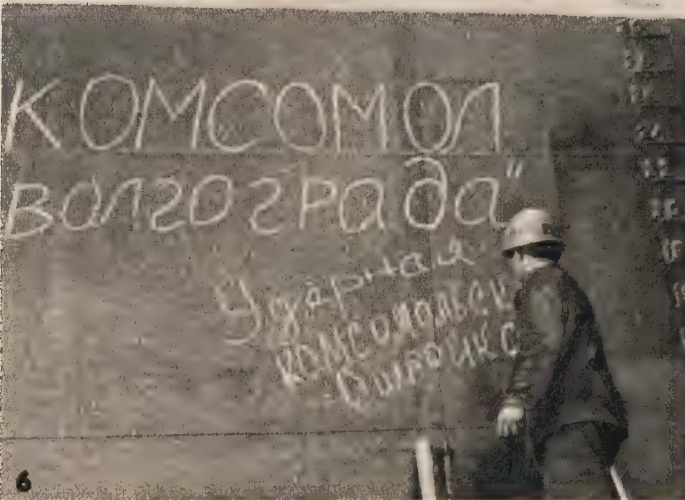 КОМСОМОЛ
ВОЛГОГРАДА"
Ударная
КОМСОМОЛЬСК
6